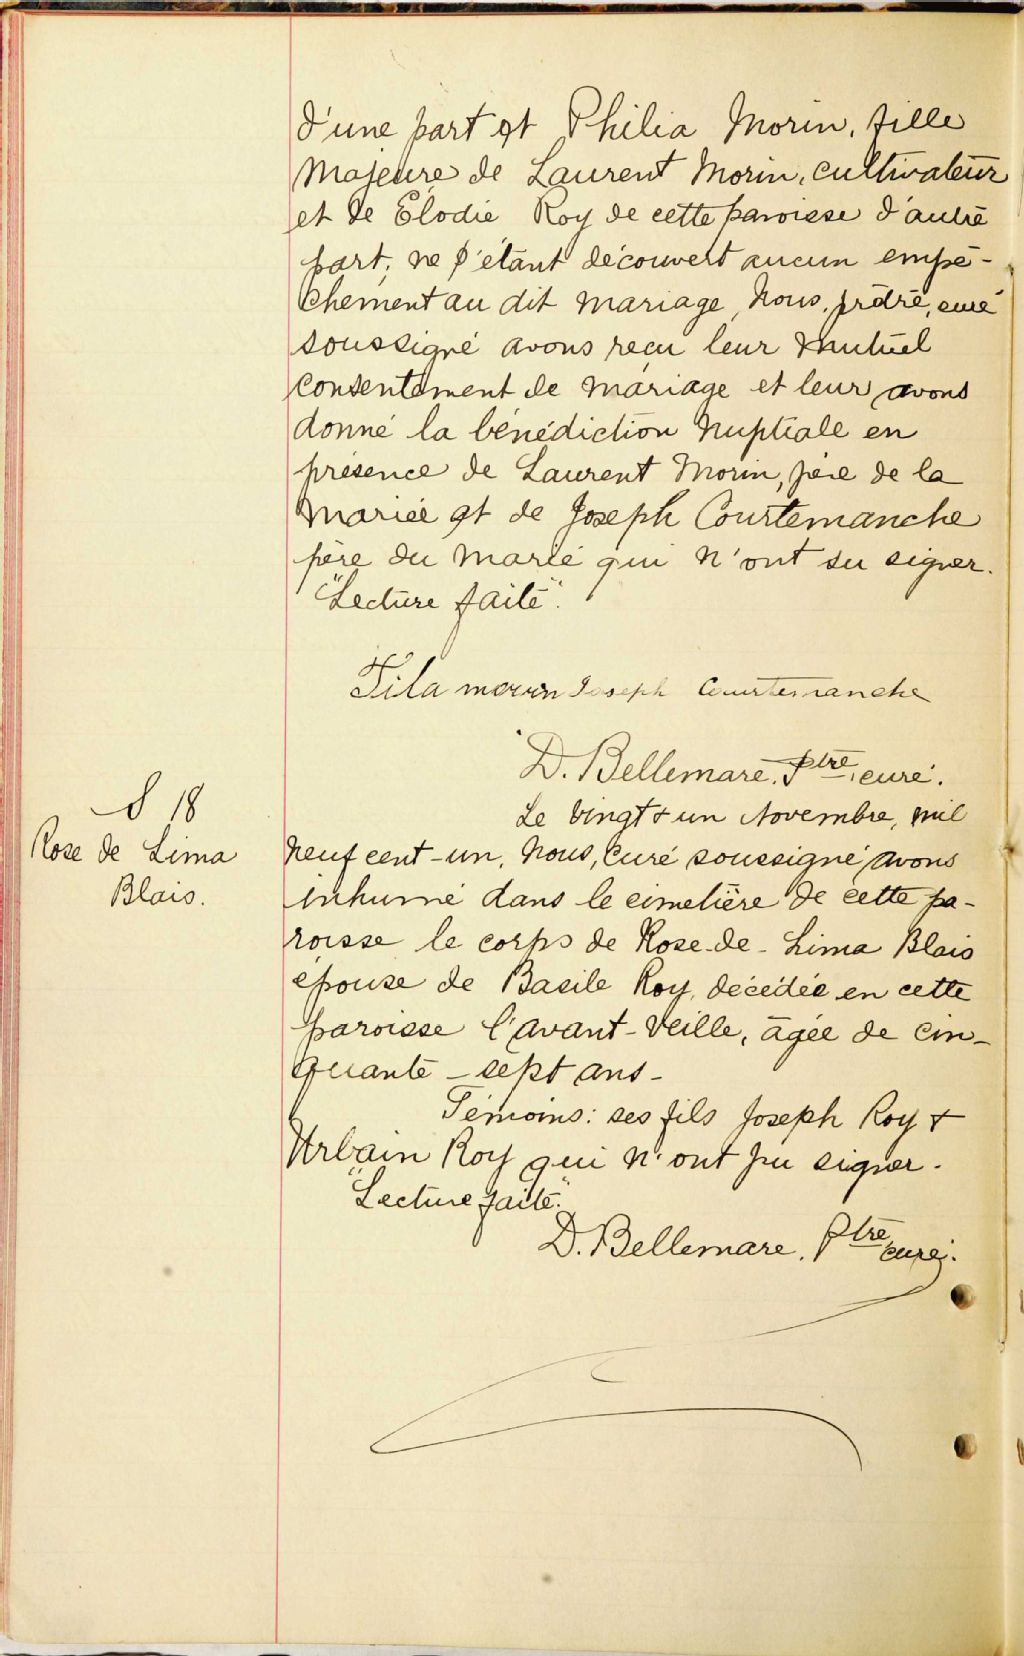 d'une part et Philia Morin, fille
Majeure de Laurent Morin, cultivateur
et de Élodie Roy de cette paroisse d'autre
part; ne s'étant découvert aucun empê-
chement au dit mariage, Nous, prêtre, curé
soussigné avons reçu leur mutuel
consentement de mariage et leur avons
donné la bénédiction nuptiale en
présence de Laurent Morin, père de la
Mariée et de Joseph Courtemanche
père du marié qui n'ont su signer.
"Lecture faite".
Fila morin Joseph Courtemanche
D. Bellemare, Ptre, curé.
S 18
Rose de Lima
Blais.
Le vingt & un Novembre, mil
neuf cent-un, Nous, Curé soussigné avons
inhumé dans le cimetière de cette pa-
roisse le corps de Rose-de-Lima Blais
épouse de Basile Roy, décédée en cette
paroisse l'avant-veille, âgée de cin-
quante-sept ans-
Témoins: ses fils Joseph Roy &
Urbain Roy qui n'ont pu signer.
"Lecture faite".
D. Bellemare, Ptre curé.